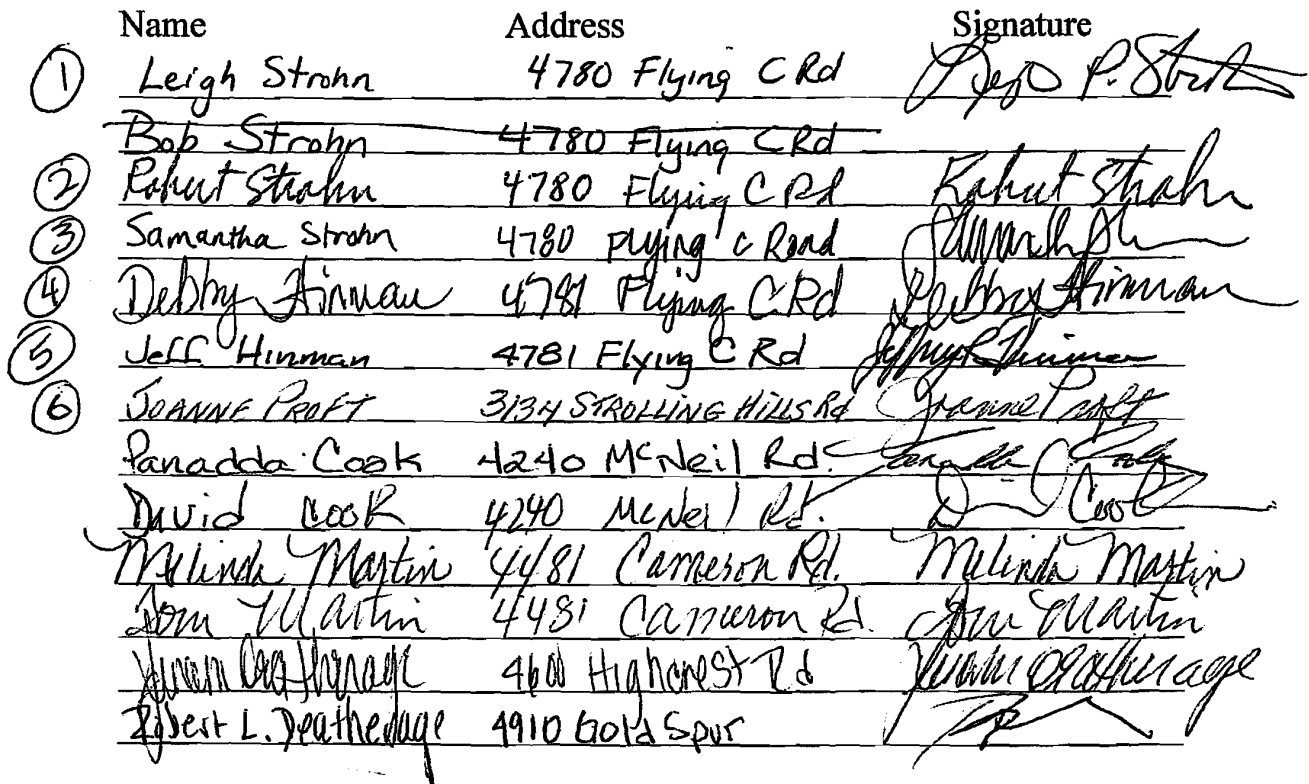 Name Address Signature
1 Leigh Strohn 4780 Flying C Rd Leigh P. Stroh
Bob Strohn 4780 Flying C Rd
2 Robert Strohn 4780 Flying C Rd Robert Strohn
3 Samantha Strohn 4780 Flying C Road
4 Debby Hinman 4781 Flying C Rd Debby Hinman
5 Jeff Hinman 4781 Flying C Rd Jeffrey Hinman
6 JOANNE PROFT 3134 STROLLING HILLS Rd Joanne Proft
Panadda Cook 4240 McNeil Rd.
David Cook 4240 McNeil Rd. D Cook
Melinda Martin 4481 Cameron Rd. Melinda Martin
Tom Martin 4481 Cameron Rd. Tom Martin
Deatherage 4600 Highcrest Rd Deatherage
Robert L. Deatherage 4910 Gold Spur